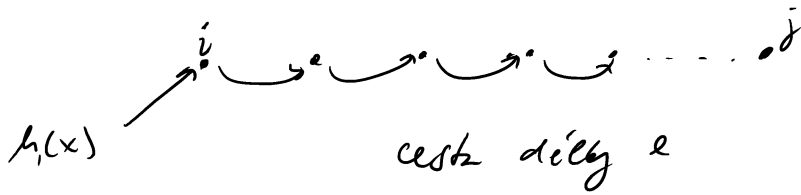 i j
h₁(x) cesta délky l